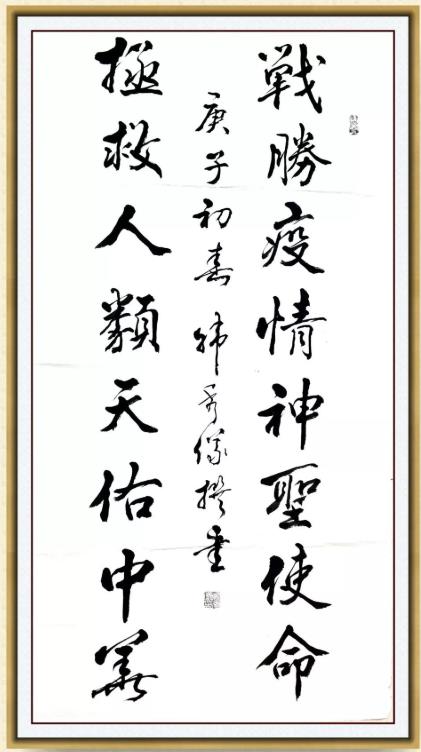 戰勝疫情神聖使命
拯救人類天佑中華
庚子初春 撰書